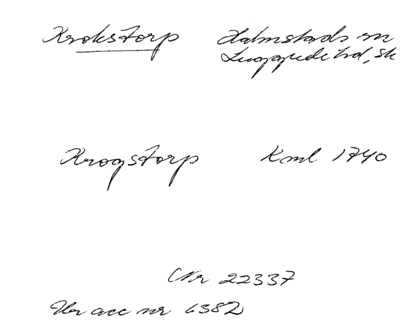 Krokstorp Halmstads sn
Luggude hd, Sk
Krogstorp Kml 1740
Nr 22337
Ur acc nr 6382